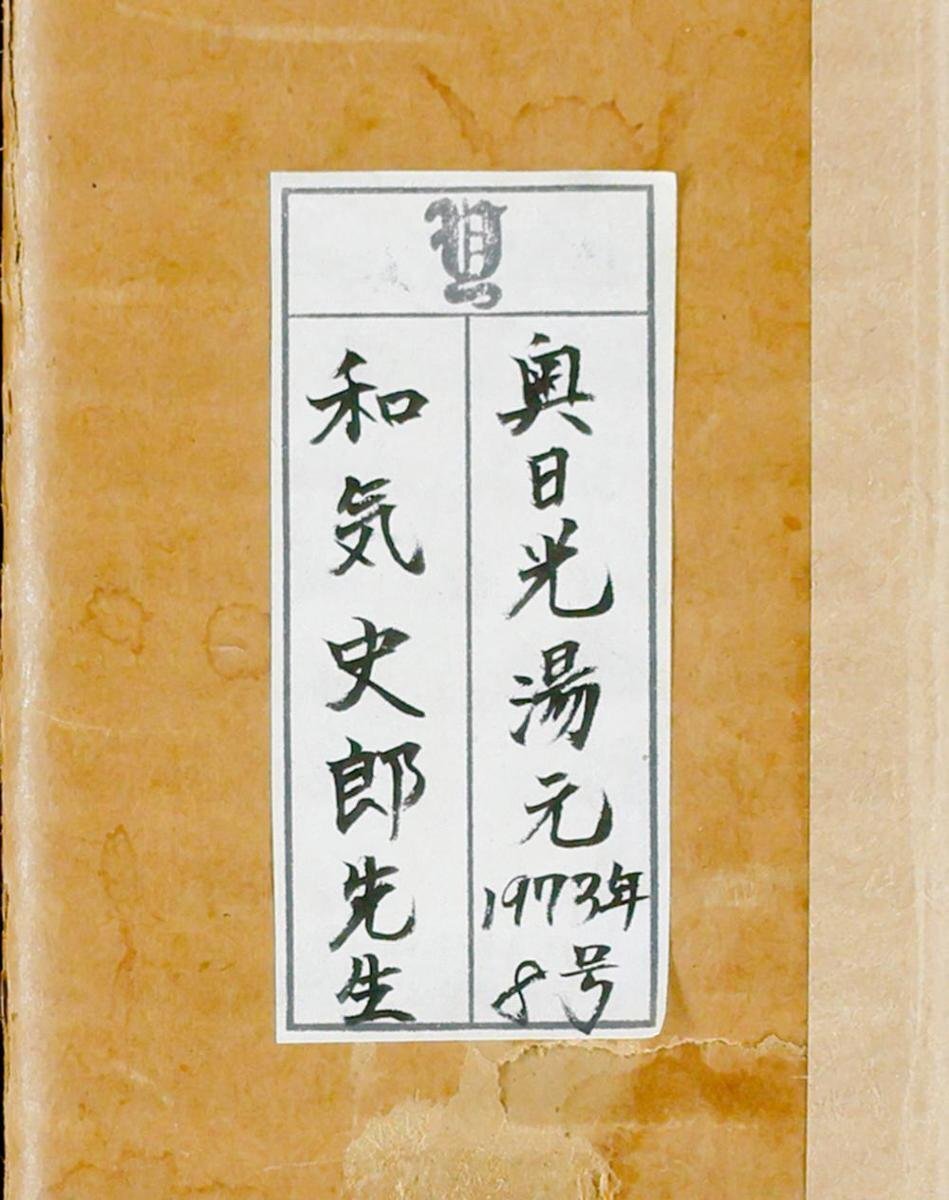 奥日光湯元
1973年
8号
和気史郎先生